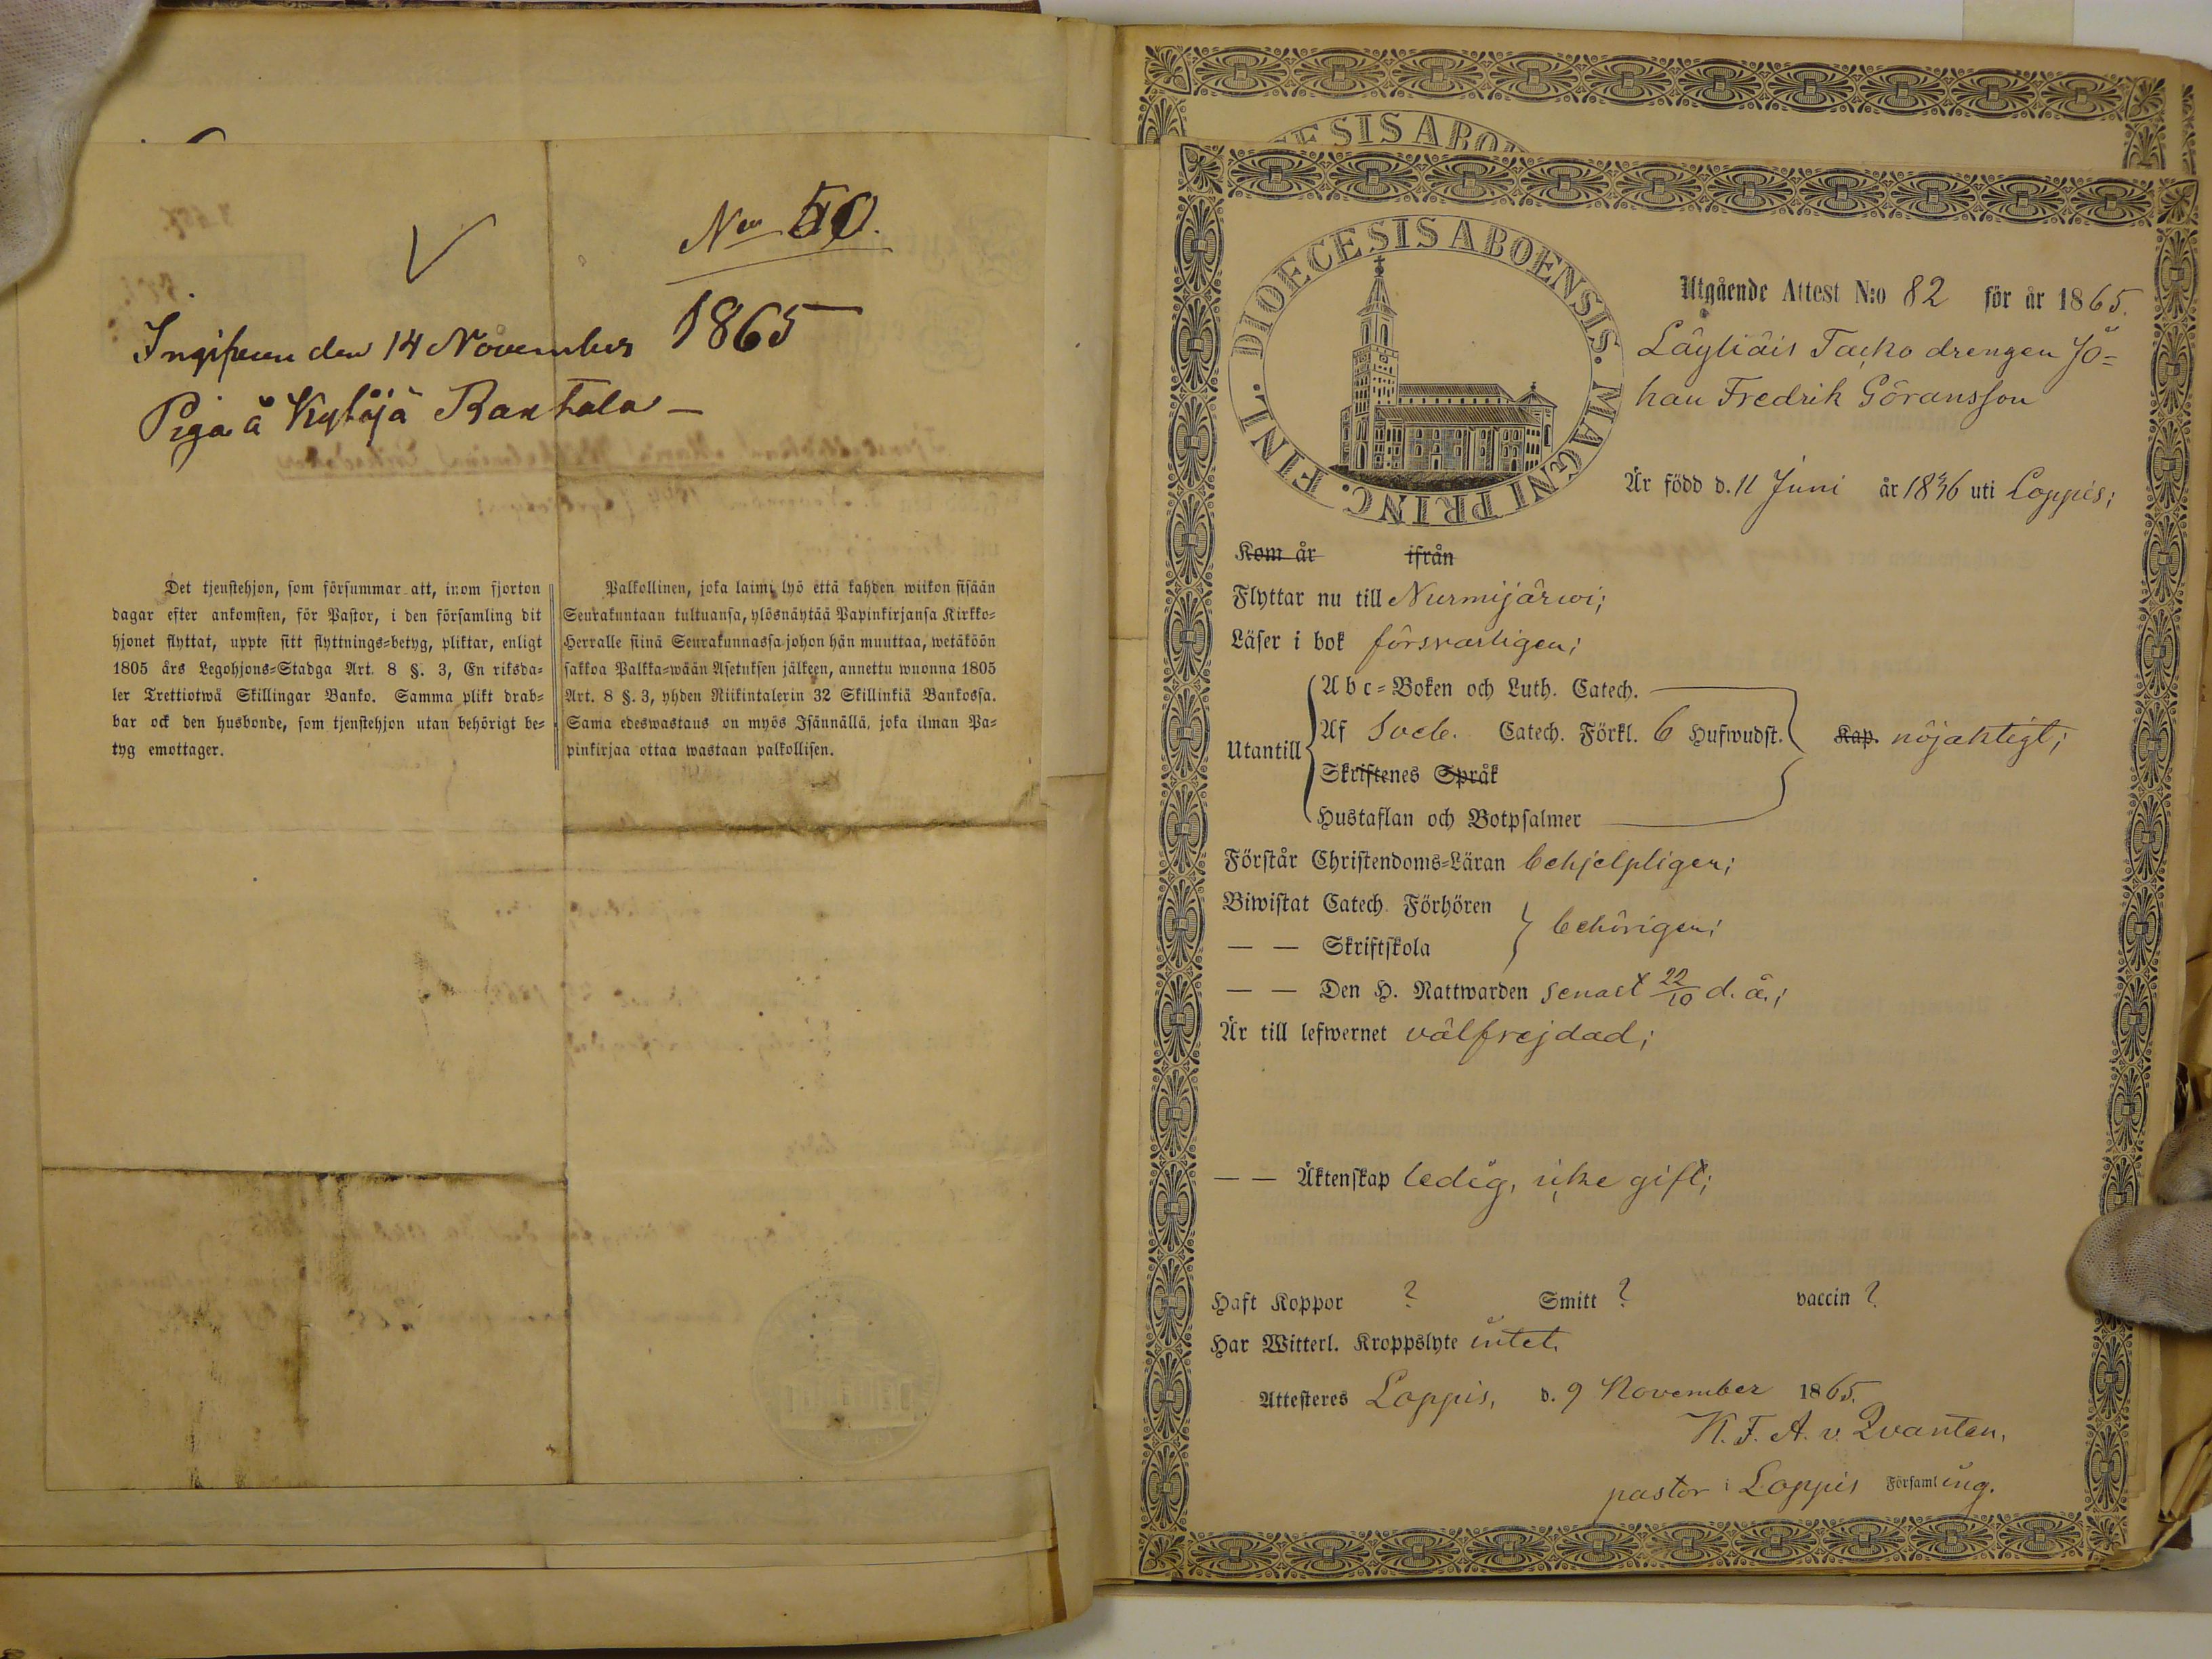 No 50.
Ingifven den 14 November 1865
Piga å Kytäjä Rantala —
Det tjenstehjon, som försummar att, inom fjorton
dagar efter ankomsten, för Pastor, i den församling dit
hjonet flyttat, uppte sitt flyttnings=betyg, pliktar, enligt
1805 års Legohjons=Stadga Art. 8 §. 3, En riksda=
ler Trettiotwå Skillingar Banko. Samma plikt drab=
bar ock den husbonde, som tjenstehjon utan behörigt be=
tyg emottager.
Palkollinen, joka laimi lyö että kahden wiikon sisään
Seurakuntaan tultuansa, ylösnäytää Papinkirjansa Kirkko=
Herralle siinä Seurakunnassa johon hän muuttaa, wetäköön
sakkoa Palkka=wään Asetuksen jälkeen, annettu wuonna 1805
Art. 8 §. 3, yhden Riikintalerin 32 Skillinkiä Bankossa.
Sama edeswastaus on myös Isännällä, joka ilman Pa=
pinkirjaa ottaa wastaan palkollisen.
DIOECESIS ABOENSIS. MAGNI PRINC. FINL.
Utgående Attest N:o 82 för år 1865.
Läyliäis Tacko drengen Jo=
han Fredrik Göransson
Är född d. 11 Juni år 1836 uti Loppis;
Kom år ifrån
Flyttar nu till Nurmijärwi;
Läser i bok försvarligen;
Utantill
Abc=Boken och Luth. Catech.
Af Sveb. Catech. Förkl. 6 Hufwudst. Kap. nöjaktigt;
Skriftenes Språk
Hustaflan och Botpsalmer
Förstår Christendoms=Läran behjelpligen;
Biwistat Catech. Förhören
— — Skriftskola behörigen;
— — Den H. Nattwarden senast 22/10 d. å.;
Är till lefwernet välfrejdad;
— — Äktenskap ledig, icke gift;
Haft Koppor ? Smitt ? vaccin ?
Har Witterl. Kroppslyte intet.
Attesteres Loppis, d. 9 November 1865.
K. F. A. v. Qvanten,
pastor i Loppis Församling.